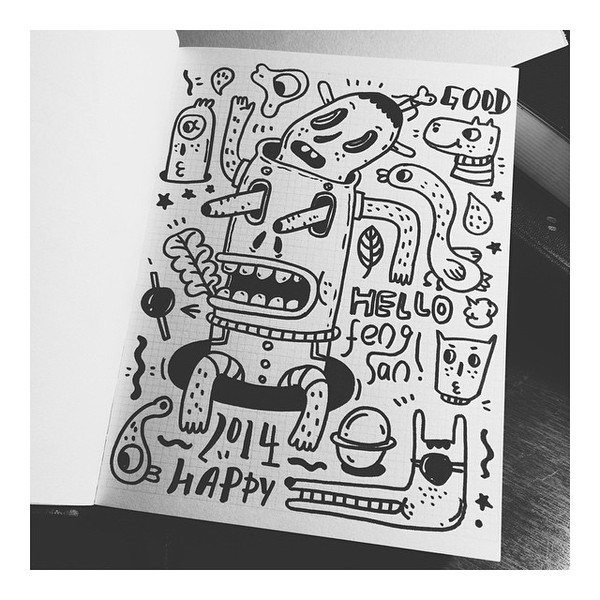 GOOD
HELLO
feng
san!
2014
HAPPY